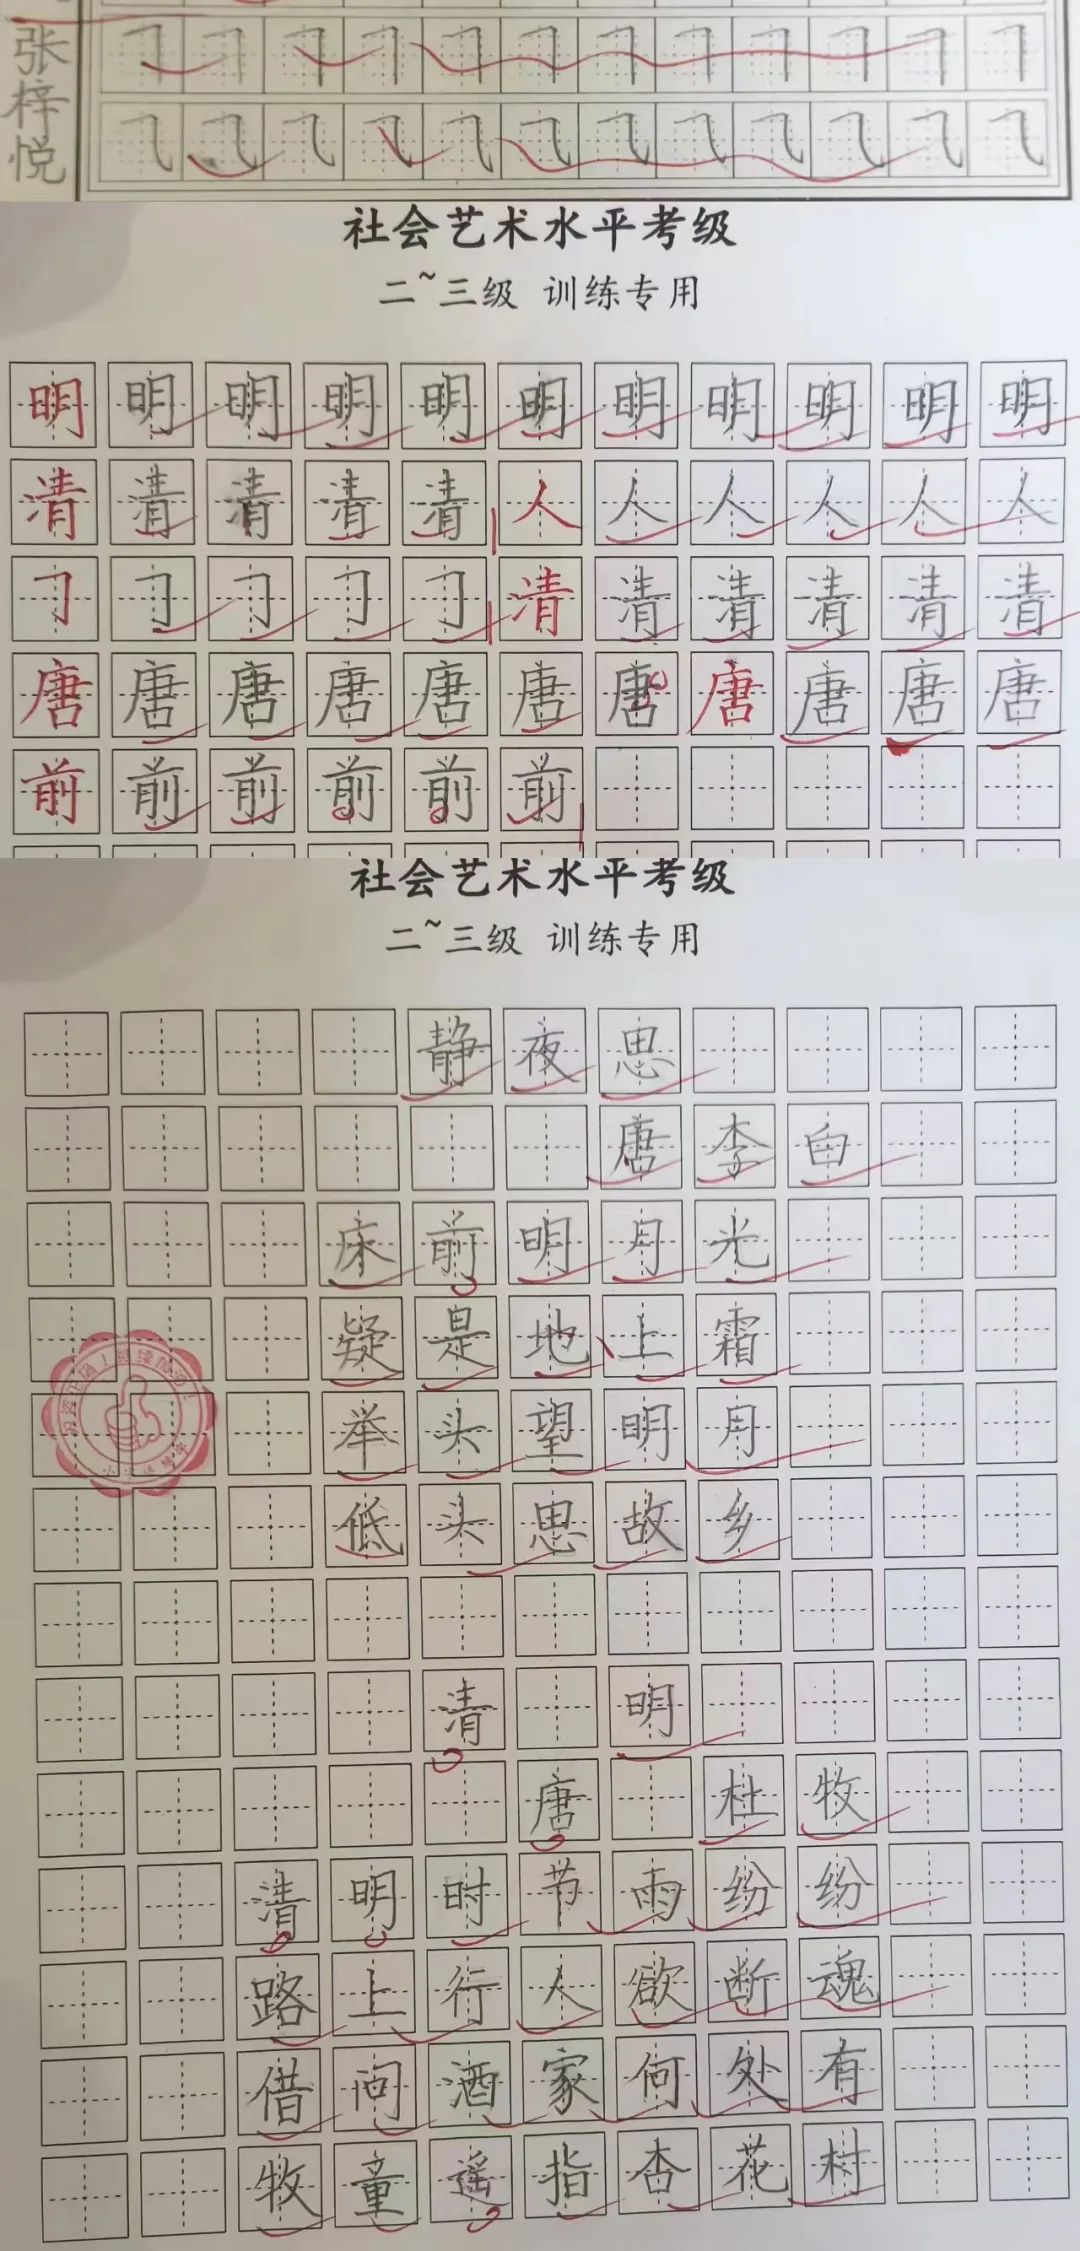 张梓悦
社会艺术水平考级
二~三级 训练专用
明明明明明明明明明明明
清清清清清人人人人人人
清清清清清清
唐唐唐唐唐唐唐唐唐唐唐
前前前前前前
社会艺术水平考级
二~三级 训练专用
静夜思
唐李白
床前明月光
疑是地上霜
举头望明月
低头思故乡
清明
唐杜牧
清明时节雨纷纷
路上行人欲断魂
借问酒家何处有
牧童遥指杏花村